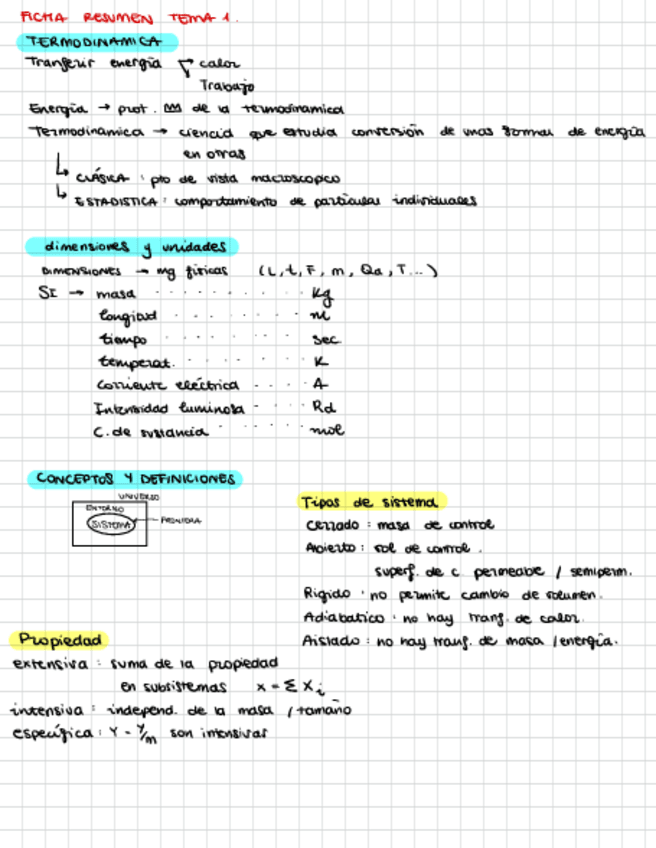 FICHA RESUMEN TEMA 1.
TERMODINAMICA
Tranferir energía calor
Trabajo
Energía → prot. de la termodinamica
Termodinamica → ciencia que estudia conversión de unas formas de energía
en otras
↳ CLÁSICA : pto de vista macroscopico
↳ ESTADISTICA : comportamiento de particulas individuales
dimensiones y unidades
DIMENSIONES → mg físicas (L, t, F, m, Qa, T...)
SI → masa . . . . . . . . . . Kg
longitud . . . . . . . m
tiempo . . . . . . sec
temperat. . . . . . K
Corriente eléctrica . . . . A
Intensidad luminosa - . . . Rd
C. de sustancia . . . . . . mol
CONCEPTOS Y DEFINICIONES
UNIVERSO
ENTORNO
SISTEMA
FRONTERA
Tipos de sistema
Cerrado : masa de control
Abierto : vol de control.
superf. de c. permeable / semiperm.
Rigido : no permite cambio de volumen.
Adiabatico : no hay transf. de calor.
Aislado : no hay transf. de masa / energía.
Propiedad
extensiva : suma de la propiedad
en subsistemas x = Σ Xi
intensiva : independ. de la masa / tamaño
específica : Y = Y/m son intensivas